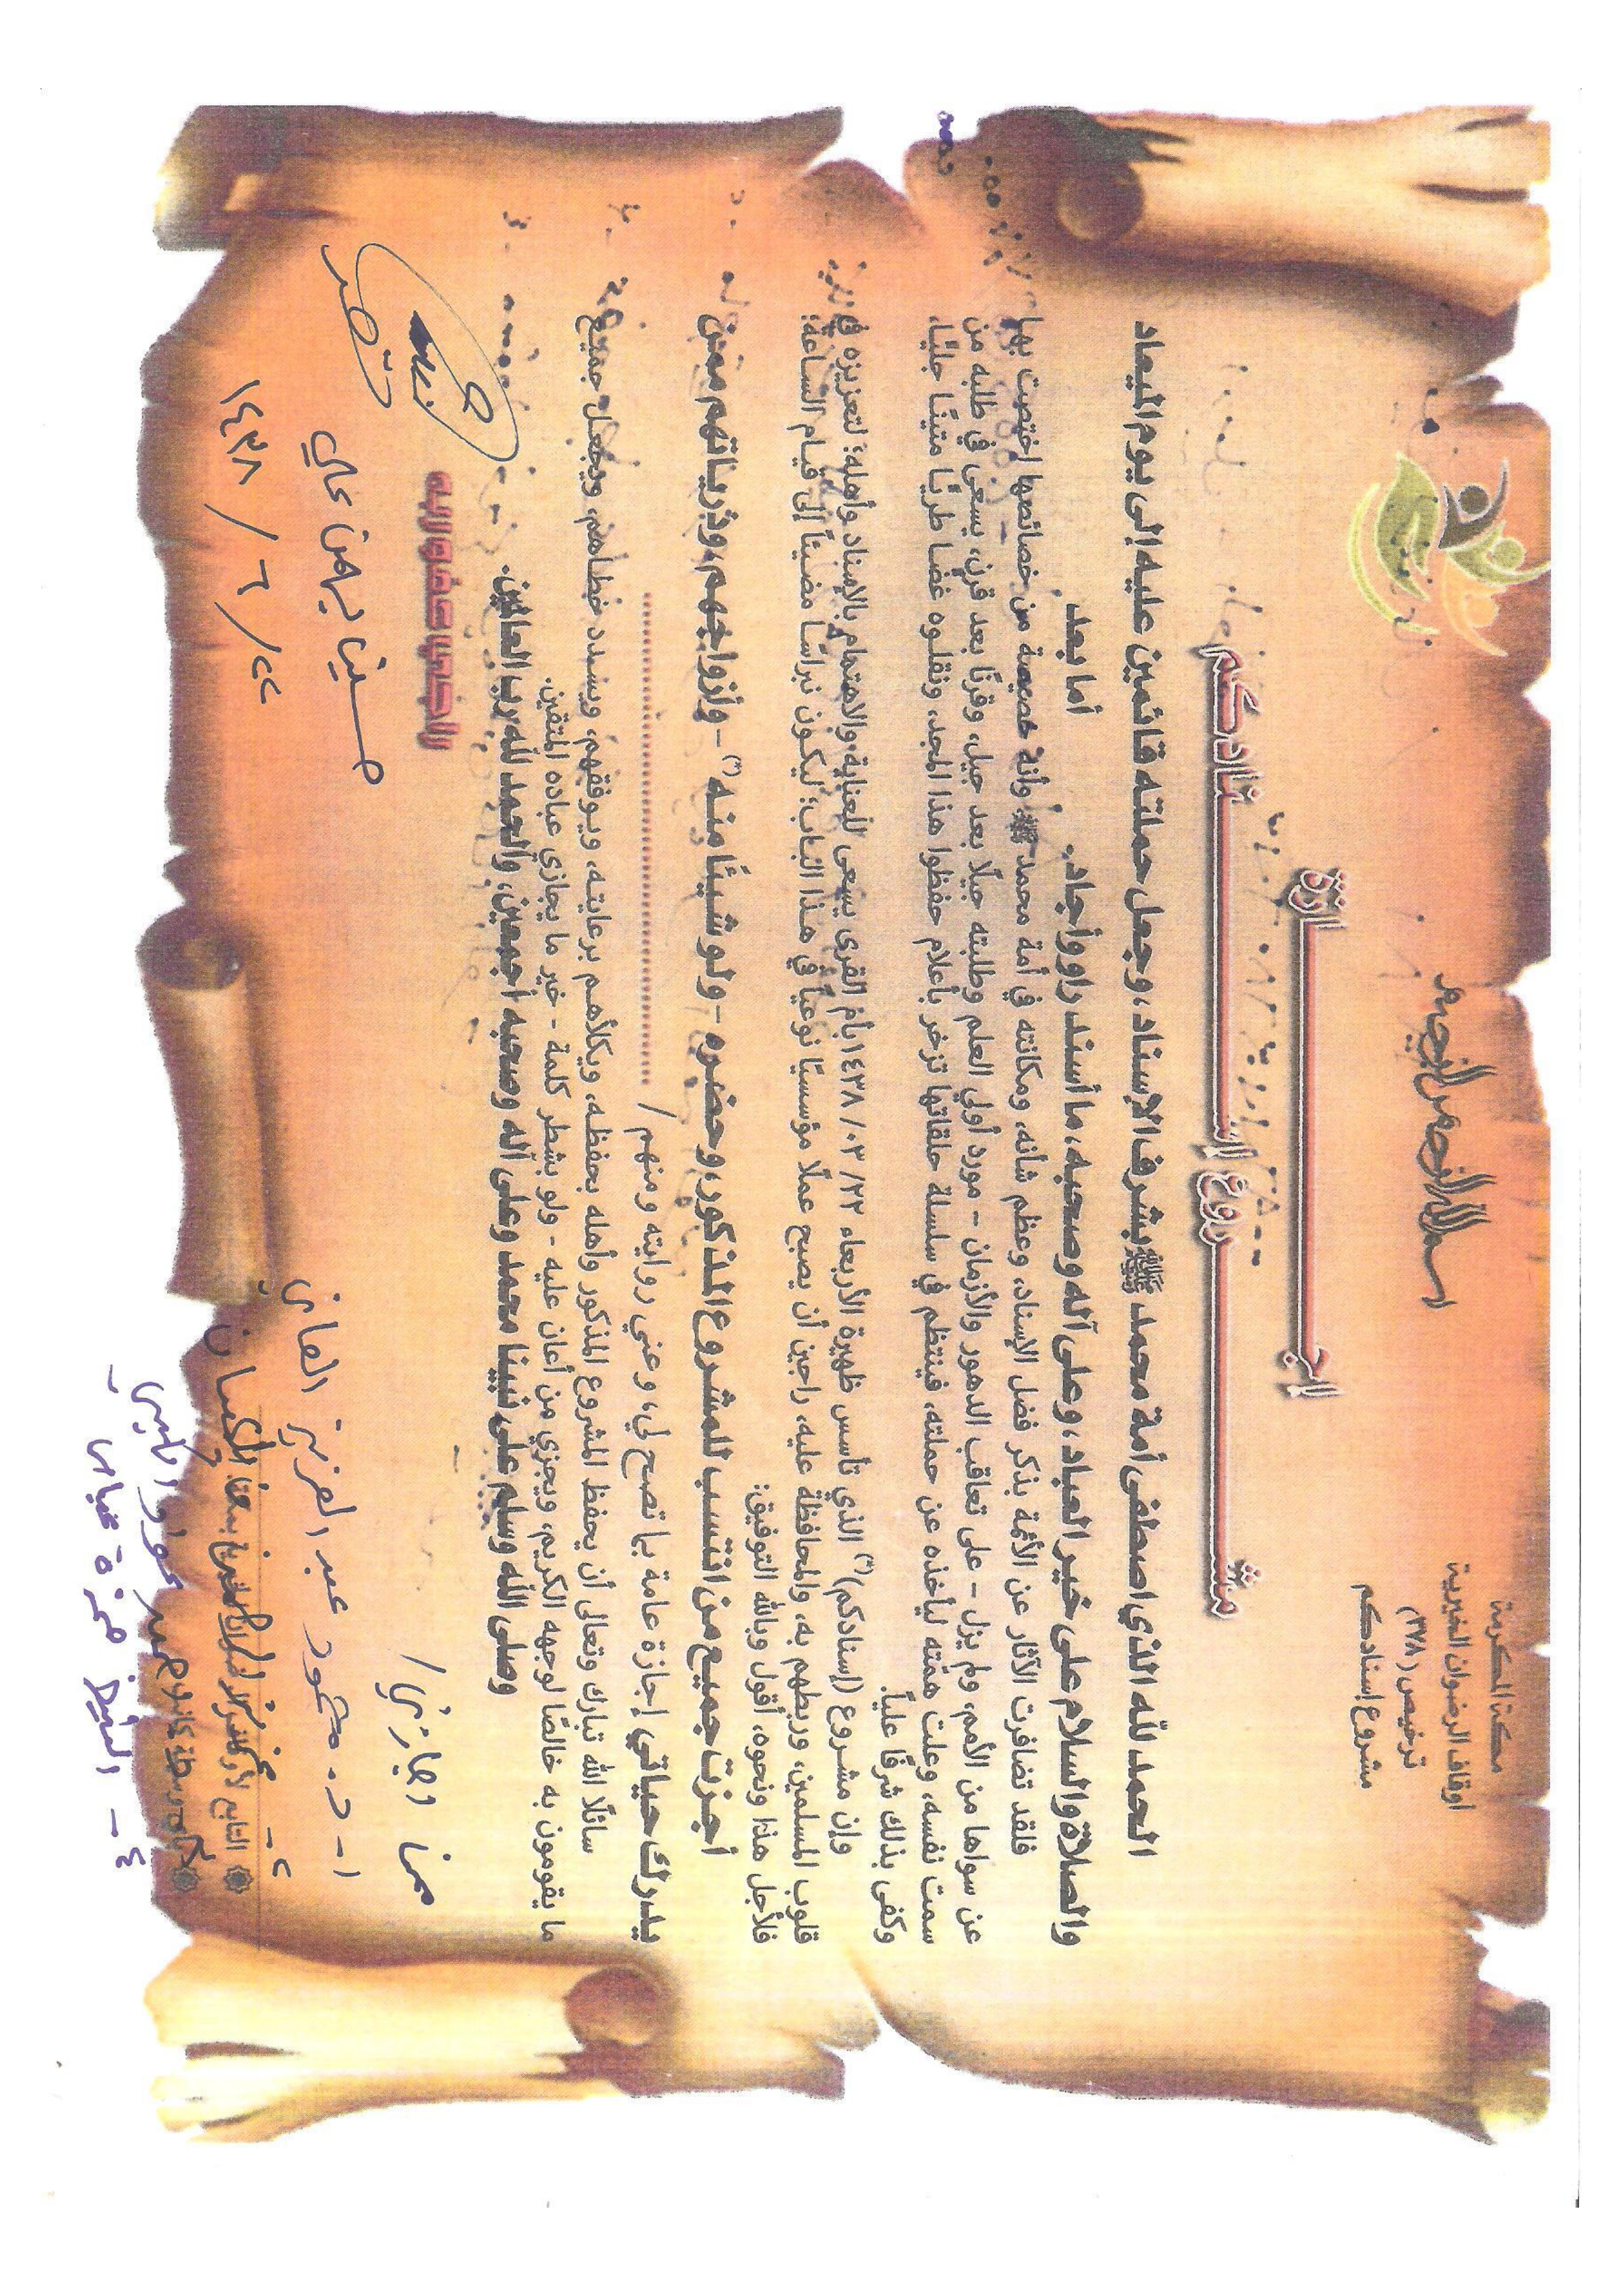 مكة المكرمة
أوقاف الرضوان الخيرية
ترخيص (٣٧٨)
مشروع إسنادكم
بسم الله الرحمن الرحيم
إجازة
مشروع إسنادكم
الحمد لله الذي اصطفى أمة محمد ﷺ بشرف الإسناد، وجعل حملته قائمين عليه إلى يوم الميعاد
والصلاة والسلام على خير العباد، وعلى آله وصحبه، ما أسند راو وأجاد.
أما بعد
فلقد تضافرت الآثار عن الأئمة بذكر فضل الإسناد، وعظم شأنه، ومكانته في أمة محمد ﷺ وأنه خصيصة من خصائصها اختصت بها
عن سواها من الأمم، ولم يزل - على تعاقب الدهور والأزمان - مورد أولي العلم وطلبته جيلًا بعد جيل، وقرنًا بعد قرن، يسعى في طلبه من
سمت نفسه، وعلت همته ليأخذه عن حملته، فينتظم في سلسلة حلقاتها تزخر بأعلام حفظوا هذا المجد، ونقلوه غضا طريًا متينًا جليًا،
وكفى بذلك شرفًا عليًا.
وإن مشروع (إسنادكم)(*) الذي تأسس ظهيرة الأربعاء ٢٢/ ٠٣/ ١٤٣٨ بأم القرى يسعى للعناية والاهتمام بالإسناد وأهله؛ لتعزيزه في
قلوب المسلمين، وربطهم به، والمحافظة عليه، راجين أن يصبح عملًا مؤسسيًا نوعياً في هذا الباب؛ ليكون نبراسًا مضيئاً إلى قيام الساعة؛
فلأجل هذا ونحوه، أقول وبالله التوفيق:
أجزت جميع من انتسب للمشروع المذكور، وحضره - ولو شيئًا منه(*) - وأزواجهم، وذرياتهم ممن
يدرك حياتي إجازة عامة بما تصح لي، وعني روايته ومنهم /
سائلًا الله تبارك وتعالى أن يحفظ المشروع المذكور وأهله بحفظه، ويكلأهم برعايته، ويوفقهم، ويسدد خطاهم، ويجعل جميع
ما يقومون به خالصًا لوجهه الكريم، ويجزي من أعان عليه - ولو بشطر كلمة - خير ما يجازي عباده المتقين.
وصلى الله وسلم على نبينا محمد وعلى آله وصحبه أجمعين، والحمد لله رب العالمين.
الراجي عفو ربه
١٤٣٨ / ٦ / ٢٢
١- د. محمود عبد العزيز العاني
٢-
٤- الشيخ حمزة عباس